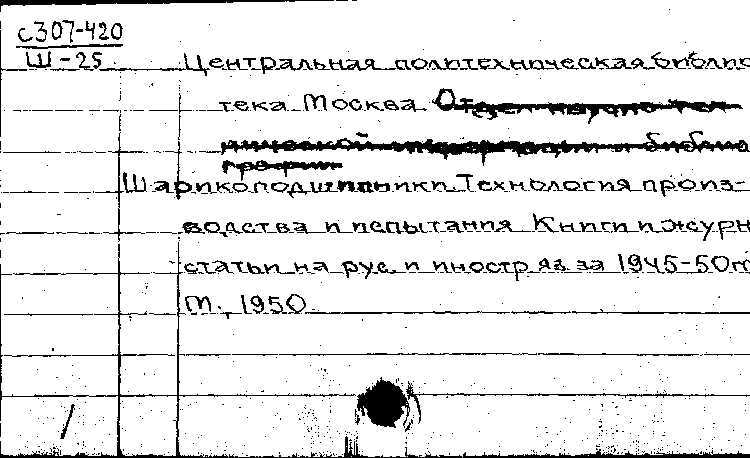 с307-420
Ш-25
Центральная политехническая библио
тека Москва Отдел научно тех
нической информации и библио
графии
Шарикоподшипники Технология произ-
водства и испытания Книги и журн
статьи на рус и иностр яз за 1945-50гг
М., 1950